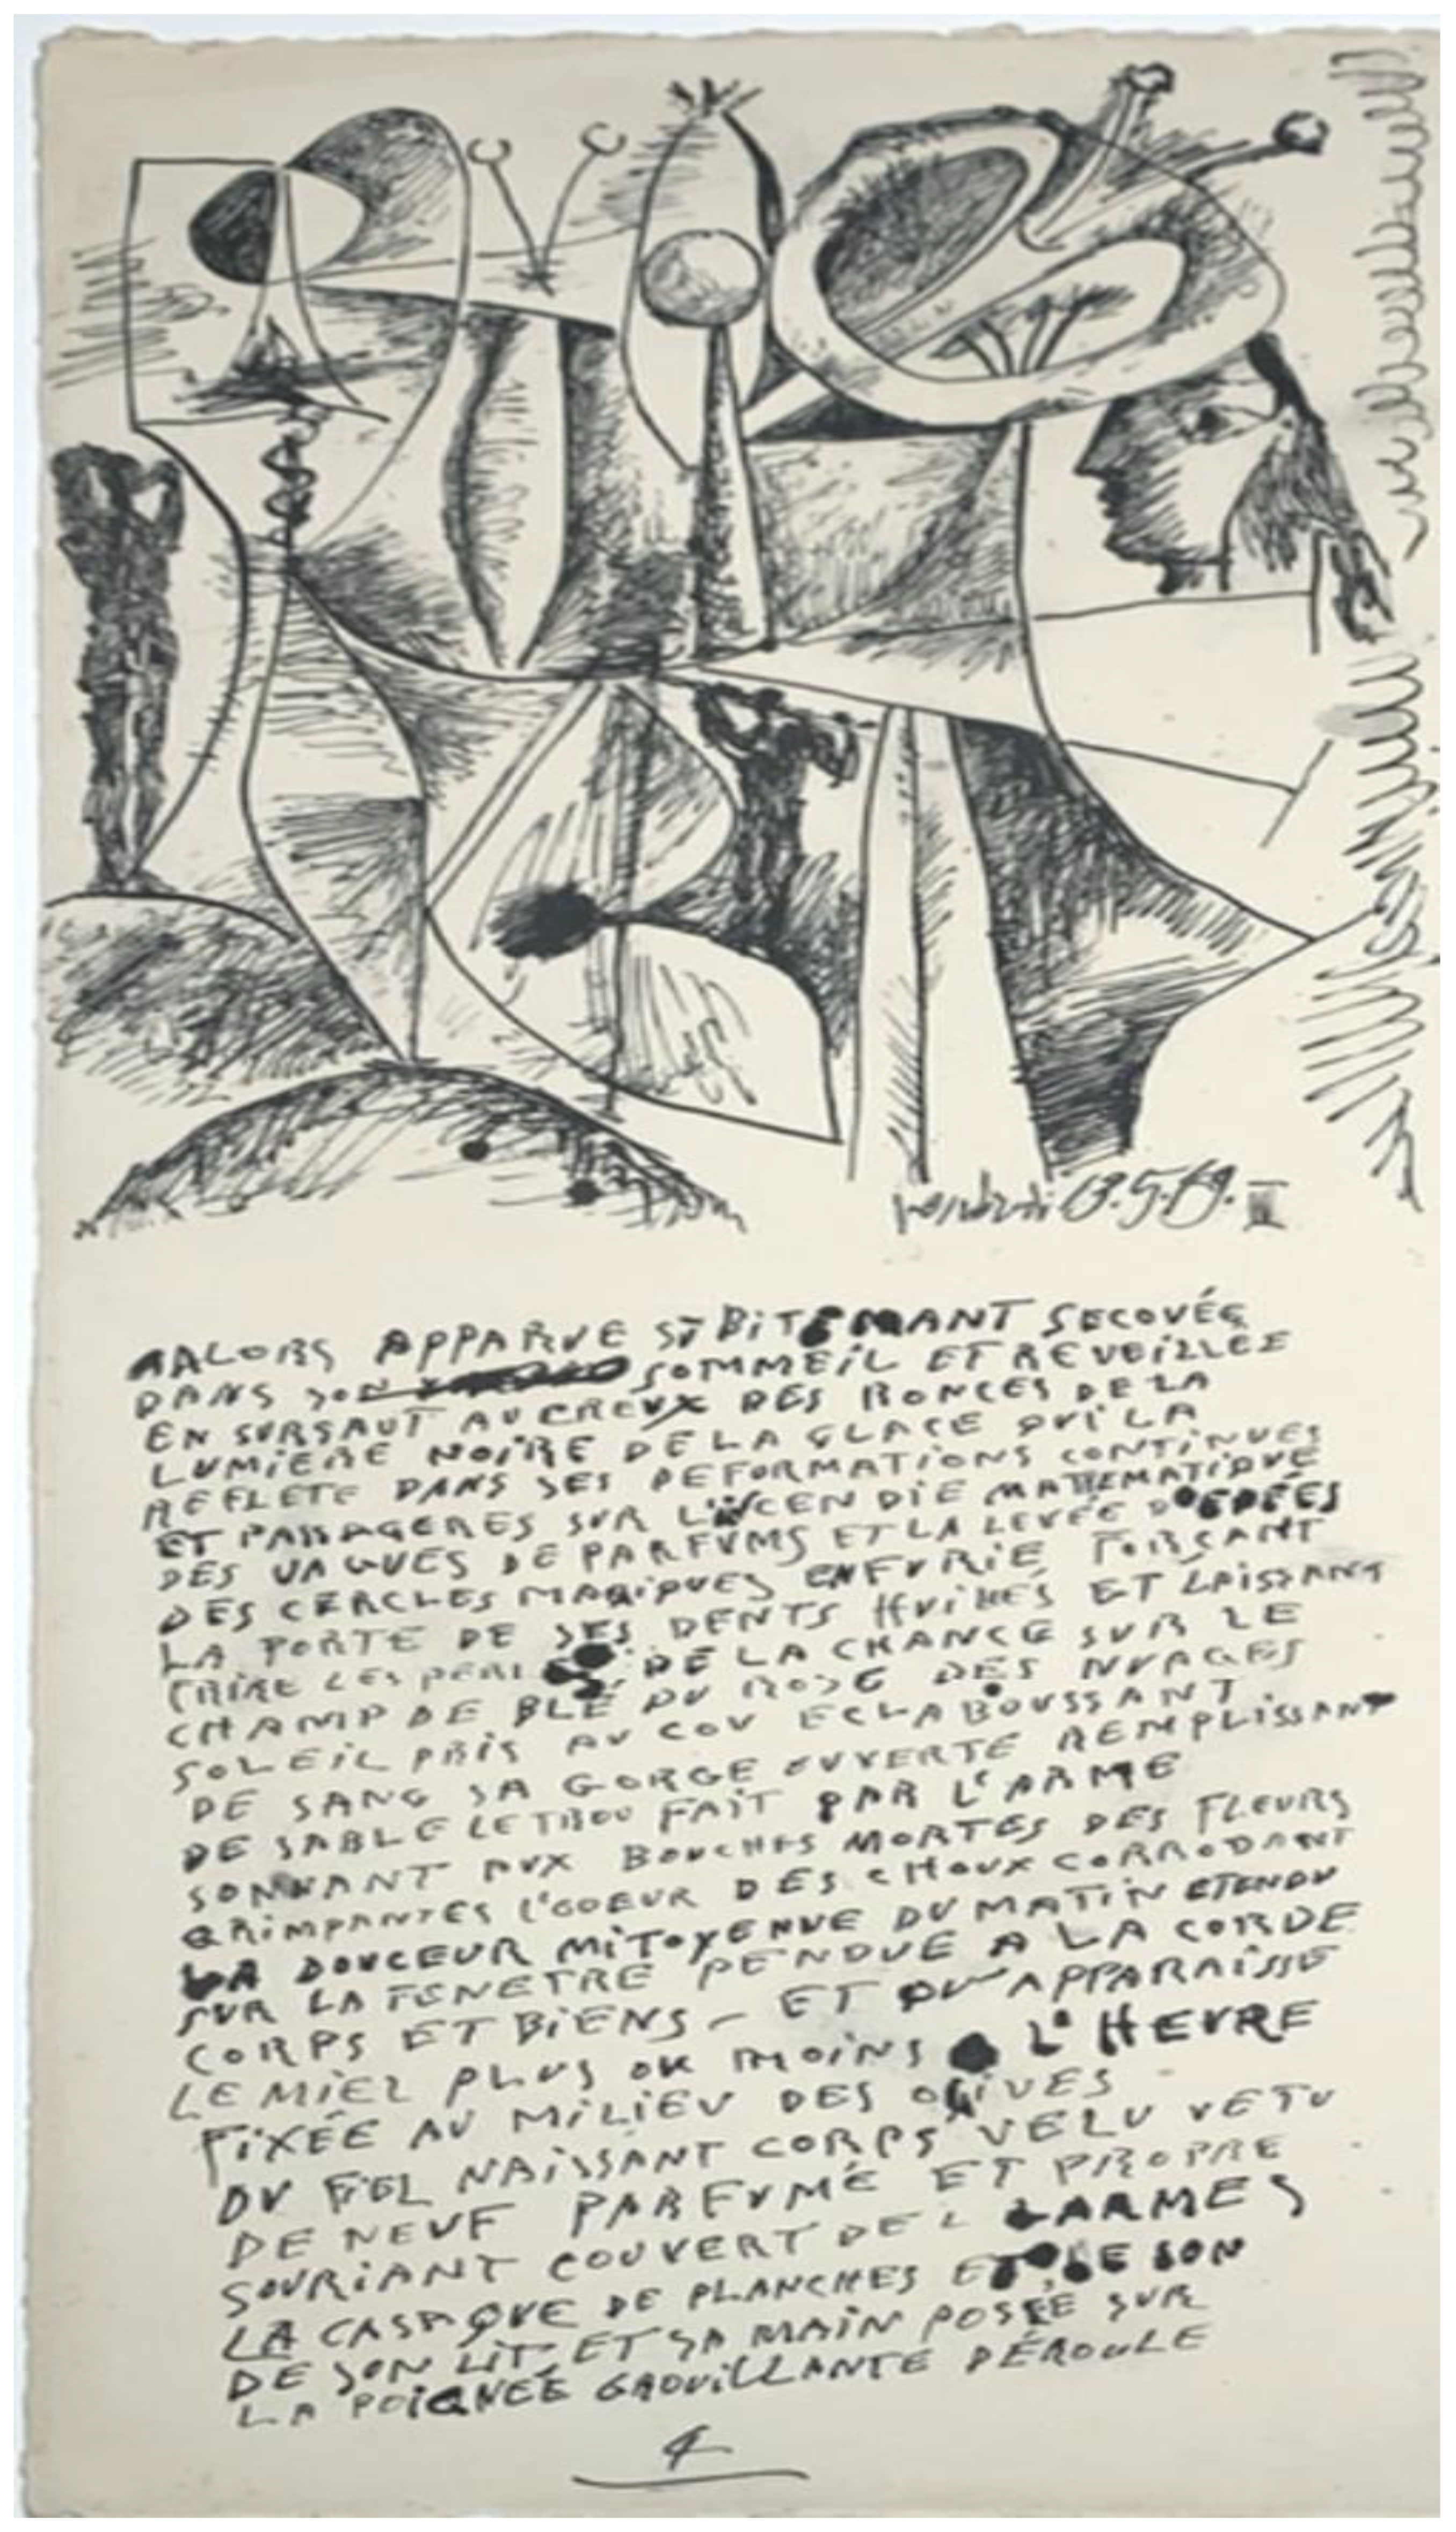 13.5.69. III
AALORS APPARUE SUBITEMANT SECOUÉE
DANS SON SOMMEIL ET REVEILLEE
EN SURSAUT AU CREUX DES RONCES DE LA
LUMIERE NOIRE DE LA GLACE QUI LA
REFLETE DANS SES DEFORMATIONS CONTINUES
ET PASSAGERES SUR L'INCENDIE MATHEMATIQUE
DES VAGUES DE PARFUMS ET LA LEVÉE D'EPÉES
DES CERCLES MAGIQUES EN FURIE FORÇANT
LA PORTE DE SES DENTS ET LAISSANT
LES DE LA CHANCE SUR LE
CHAMP DE BLÉ DU ROSE DES NUAGES
SOLEIL PRIS AU COU ECLABOUSSANT
DE SANG SA GORGE OUVERTE REMPLISSANT
DE SABLE LE TROU FAIT PAR L'ARME
SONNANT AUX BOUCHES MORTES DES FLEURS
GRIMPANTES L'ODEUR DES CHOUX CORRODANT
LA DOUCEUR MITOYENNE DU MATIN ETENDU
SUR LA FENETRE PENDUE A LA CORDE
CORPS ET BIENS - ET QU'APPARAISSE
LE MIEL PLUS OU MOINS A L'HEURE
FIXÉE AU MILIEU DES OGIVES -
DU FIEL NAISSANT CORPS VELU VETU
DE NEUF PARFUMÉ ET PROPRE
SOURIANT COUVERT DE L LARMES
LA CASAQUE DE PLANCHES ET DE SON
DE SON LIT ET SA MAIN POSÉE SUR
LA POIGNEÉ GROUILLANTE DÉROULE
4